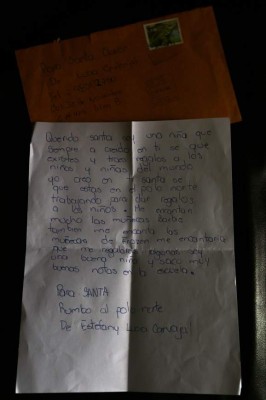 Santa
Querido santa soy una niña que
siempre a creido en ti se que
existes y traes regalos a los
niños y niñas del mundo
yo creo en ti santa se
que estas en el polo norte
trabajando para dar regalos
a los niños. Me encantan
mucho las muñecas barbie
tambien me encanta las
muñecas de frozen me encantaria
que me regalaras algunas soy
una buena niña y saco muy
buenas notas en la escuela.
Para SANTA
Rumbo al polo norte
De Estefany Luna Carvajal